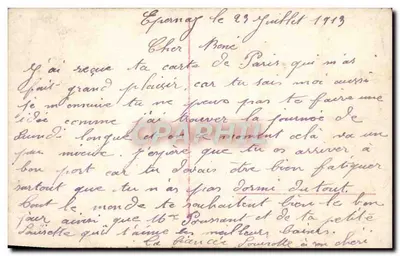 Epernay le 23 Juillet 1913
Cher René
J'ai reçue ta carte de Paris qui m'as
fait grand plaisir, car tu sais moi aussi
je m'ennuie tu ne peus pas te faire une
idée comme j'ai trouver la journée de
Lundi longue moment celà va un
peu mieux. J'espère que tu es arriver à
bon port car tu devais être bien fatiguer
surtout que tu n'as pas dormi du tout.
tout le monde te souhaitent bien le bon
jour ainsi que Mme Poussant et de ta petite
qui t'aime en meilleurs baisers.
La fiancée à son cheri